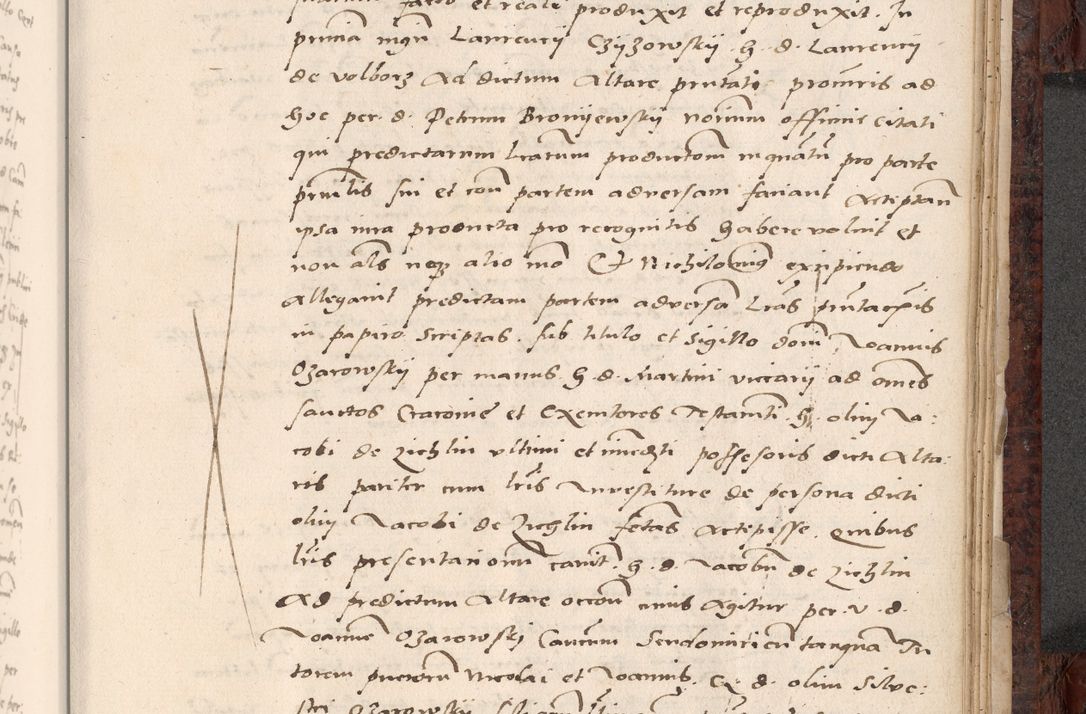 facto et reali produxit et reproduxit. In
pntia mgri Laurencij Czyzowskij h. d. Laurencij
de volborz Ad dictum Altare pntati procuris ad
hoc per. d. Petrum Bronijewskij notarium officine citati
qui predictarum lrarum productom inquātū pro parte
prinlis sui et con partem adversam faciant Acceptaū
ipsa iura producta pro recognitis habere voluit et
non als neqz alio mō Et Nichilominus excipiendo
Allegavit predictam partem adversā Lras pntacōis
in papiro Scriptas. sub titulo et Sigillo domī Ioannis
Ozarowskij per manus h. d. Martini viccarij ad omēs
sanctos Cracovie et Exemtores Testamti h. olim Ia:
cobi de Zichlin ultimi et imedti possesoris dicti Alta:
ris pariter cum lris Investiture de persona dicti
olim Iacobi de Zichlin fctas Accepisse. Quibus
lris presentationum cavit. h. d. Iacobū de Zichlin
Ad predictum Altare occoū cuius Agitur per. v. d.
Ioannē Ozarowskj Canūm Sendomirieñ tanquā Tu
torem puerorū Nicolai et Ioannis. G. d. olim Silve:
stri Ozarowskij